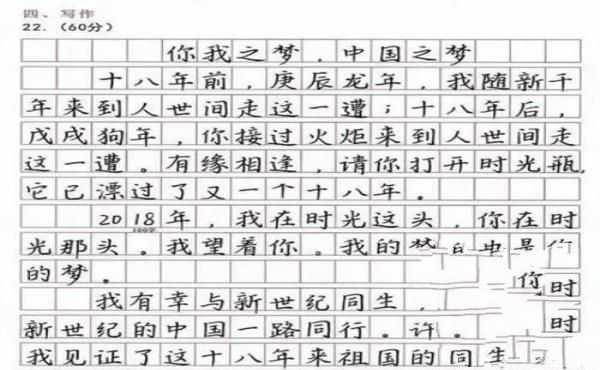 四、写作
22.（60分）
你我之梦，中国之梦
十八年前，庚辰龙年，我随新千
年来到人世间走这一遭；十八年后，
戊戌狗年，你接过火炬来到人世间走
这一遭。有缘相逢，请你打开时光瓶，
它已漂过了又一个十八年。
2018年，我在时光这头，你在时
光那头。我望着你。我的
的梦。 你时
我有幸与新世纪同生， 时
新世纪的中国一路同行。许。
我见证了这十八年来祖国的同生